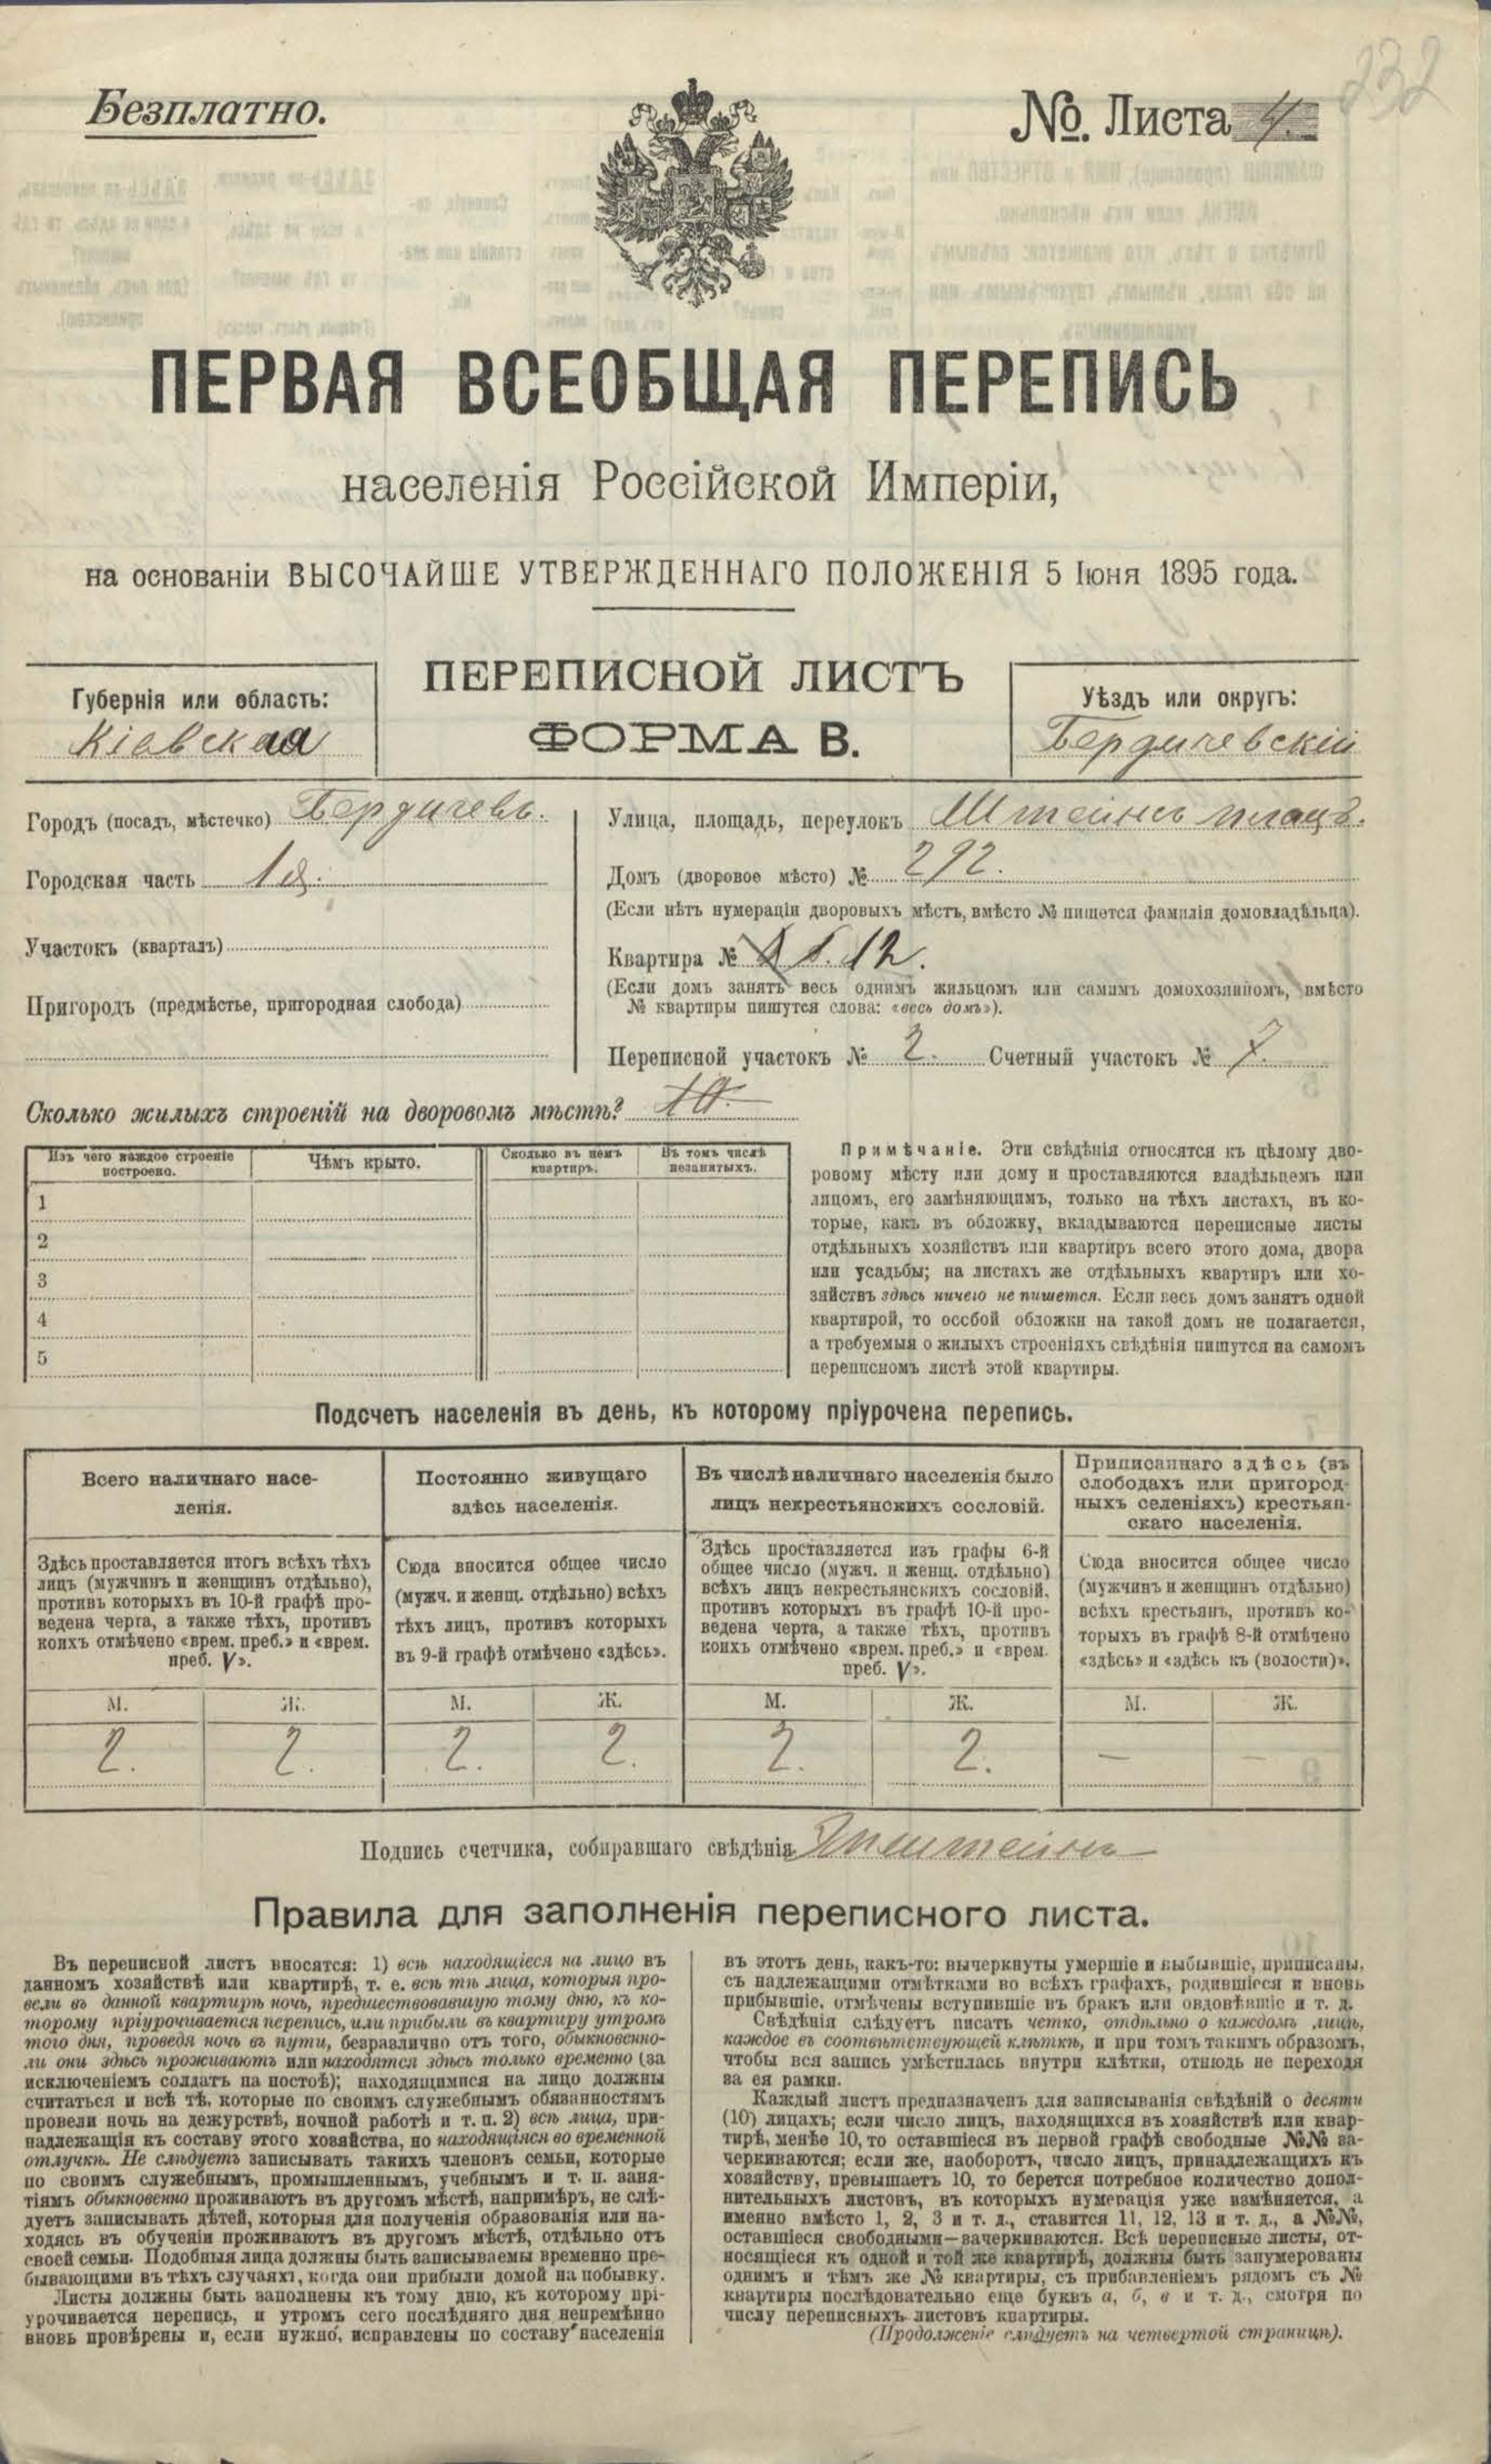 232
Безплатно.
№. Листа 4.
ПЕРВАЯ ВСЕОБЩАЯ ПЕРЕПИСЬ
населенія Россійской Имперіи,
на основаніи ВЫСОЧАЙШЕ УТВЕРЖДЕННАГО ПОЛОЖЕНІЯ 5 Іюня 1895 года.
ПЕРЕПИСНОЙ ЛИСТЪ
ФОРМА В.
Губернія или область:
Кіевская
Уѣздъ или округъ:
Бердичевскій
Городъ (посадъ, мѣстечко) Бердичевъ.
Городская часть 1я.
Участокъ (кварталъ)
Пригородъ (предмѣстье, пригородная слобода)
Улица, площадь, переулокъ Штейнсъ плацъ.
Домъ (дворовое мѣсто) № 292.
(Если нѣтъ нумераціи дворовыхъ мѣстъ, вмѣсто № пишется фамилія домовладѣльца).
Квартира № 12.
(Если домъ занятъ весь однимъ жильцомъ или самимъ домохозяиномъ, вмѣсто
№ квартиры пишутся слова: «весь домъ»).
Переписной участокъ № 2. Счетный участокъ № 7.
Сколько жилыхъ строеній на дворовомъ мѣстѣ? 10.
Изъ чего каждое строеніе
построено.
Чѣмъ крыто.
Сколько въ немъ
квартиръ.
Въ томъ числѣ
незанятыхъ.
1
2
3
4
5
Примѣчаніе. Эти свѣдѣнія относятся къ цѣлому дво-
ровому мѣсту или дому и проставляются владѣльцемъ или
лицомъ, его замѣняющимъ, только на тѣхъ листахъ, въ ко-
торые, какъ въ обложку, вкладываются переписные листы
отдѣльныхъ хозяйствъ или квартиръ всего этого дома, двора
или усадьбы; на листахъ же отдѣльныхъ квартиръ или хо-
зяйствъ здѣсь ничего не пишется. Если весь домъ занятъ одной
квартирой, то особой обложки на такой домъ не полагается,
а требуемыя о жилыхъ строеніяхъ свѣдѣнія пишутся на самомъ
переписномъ листѣ этой квартиры.
Подсчетъ населенія въ день, къ которому пріурочена перепись.
Всего наличнаго насе-
ленія.
Здѣсь проставляется итогъ всѣхъ тѣхъ
лицъ (мужчинъ и женщинъ отдѣльно),
противъ которыхъ въ 10-й графѣ про-
ведена черта, а также тѣхъ, противъ
коихъ отмѣчено «врем. преб.» и «врем.
преб. V».
Постоянно живущаго
здѣсь населенія.
Сюда вносится общее число
(мужч. и женщ. отдѣльно) всѣхъ
тѣхъ лицъ, противъ которыхъ
въ 9-й графѣ отмѣчено «здѣсь».
Въ числѣ наличнаго населенія было
лицъ некрестьянскихъ сословій.
Здѣсь проставляется изъ графы 6-й
общее число (мужч. и женщ. отдѣльно)
всѣхъ лицъ некрестьянскихъ сословій,
противъ которыхъ въ графѣ 10-й про-
ведена черта, а также тѣхъ, противъ
коихъ отмѣчено «врем. преб.» и «врем.
преб. V».
Приписаннаго здѣсь (въ
слободахъ или пригород-
ныхъ селеніяхъ) крестьян-
скаго населенія.
Сюда вносится общее число
(мужчинъ и женщинъ отдѣльно)
всѣхъ крестьянъ, противъ ко-
торыхъ въ графѣ 8-й отмѣчено
«здѣсь» и «здѣсь къ (волости)».
М. Ж. М. Ж. М. Ж. М. Ж.
2. 2. 2. 2. 2. 2. — —
Подпись счетчика, собиравшаго свѣдѣнія Эпштейнъ
Правила для заполненія переписного листа.
Въ переписной листъ вносятся: 1) всѣ находящіеся на лицо въ
данномъ хозяйствѣ или квартирѣ, т. е. всѣ тѣ лица, которыя про-
вели въ данной квартирѣ ночь, предшествовавшую тому дню, къ ко-
торому пріурочивается перепись, или прибыли въ квартиру утромъ
того дня, проведя ночь въ пути, безразлично отъ того, обыкновенно-
ли они здѣсь проживаютъ или находятся здѣсь только временно (за
исключеніемъ солдатъ на постоѣ); находящимися на лицо должны
считаться и всѣ тѣ, которые по своимъ служебнымъ обязанностямъ
провели ночь на дежурствѣ, ночной работѣ и т. п. 2) всѣ лица, при-
надлежащія къ составу этого хозяйства, но находящіяся во временной
отлучкѣ. Не слѣдуетъ записывать такихъ членовъ семьи, которые
по своимъ служебнымъ, промышленнымъ, учебнымъ и т. п. заня-
тіямъ обыкновенно проживаютъ въ другомъ мѣстѣ, напримѣръ, не слѣ-
дуетъ записывать дѣтей, которыя для полученія образованія или на-
ходясь въ обученіи проживаютъ въ другомъ мѣстѣ, отдѣльно отъ
своей семьи. Подобныя лица должны быть записываемы временно пре-
бывающими въ тѣхъ случаяхъ, когда они прибыли домой на побывку.
Листы должны быть заполнены къ тому дню, къ которому прі-
урочивается перепись, и утромъ сего послѣдняго дня непремѣнно
вновь провѣрены и, если нужно, исправлены по составу населенія
въ этотъ день, какъ-то: вычеркнуты умершіе и выбывшіе, приписаны,
съ надлежащими отмѣтками во всѣхъ графахъ, родившіеся и вновь
прибывшіе, отмѣчены вступившіе въ бракъ или овдовѣвшіе и т. д.
Свѣдѣнія слѣдуетъ писать четко, отдѣльно о каждомъ лицѣ,
каждое въ соотвѣтствующей клѣткѣ, и при томъ такимъ образомъ,
чтобы вся запись умѣстилась внутри клѣтки, отнюдь не переходя
за ея рамки.
Каждый листъ предназначенъ для записыванія свѣдѣній о десяти
(10) лицахъ; если число лицъ, находящихся въ хозяйствѣ или квар-
тирѣ, менѣе 10, то оставшіеся въ первой графѣ свободные №№ за-
черкиваются; если же, наоборотъ, число лицъ, принадлежащихъ къ
хозяйству, превышаетъ 10, то берется потребное количество допол-
нительныхъ листовъ, въ которыхъ нумерація уже измѣняется, а
именно вмѣсто 1, 2, 3 и т. д., ставится 11, 12, 13 и т. д., а №№,
оставшіеся свободными—зачеркиваются. Всѣ переписные листы, от-
носящіеся къ одной и той же квартирѣ, должны быть занумерованы
однимъ и тѣмъ же № квартиры, съ прибавленіемъ рядомъ съ №
квартиры послѣдовательно еще буквъ а, б, в и т. д., смотря по
числу переписныхъ листовъ квартиры.
(Продолженіе слѣдуетъ на четвертой страницѣ).